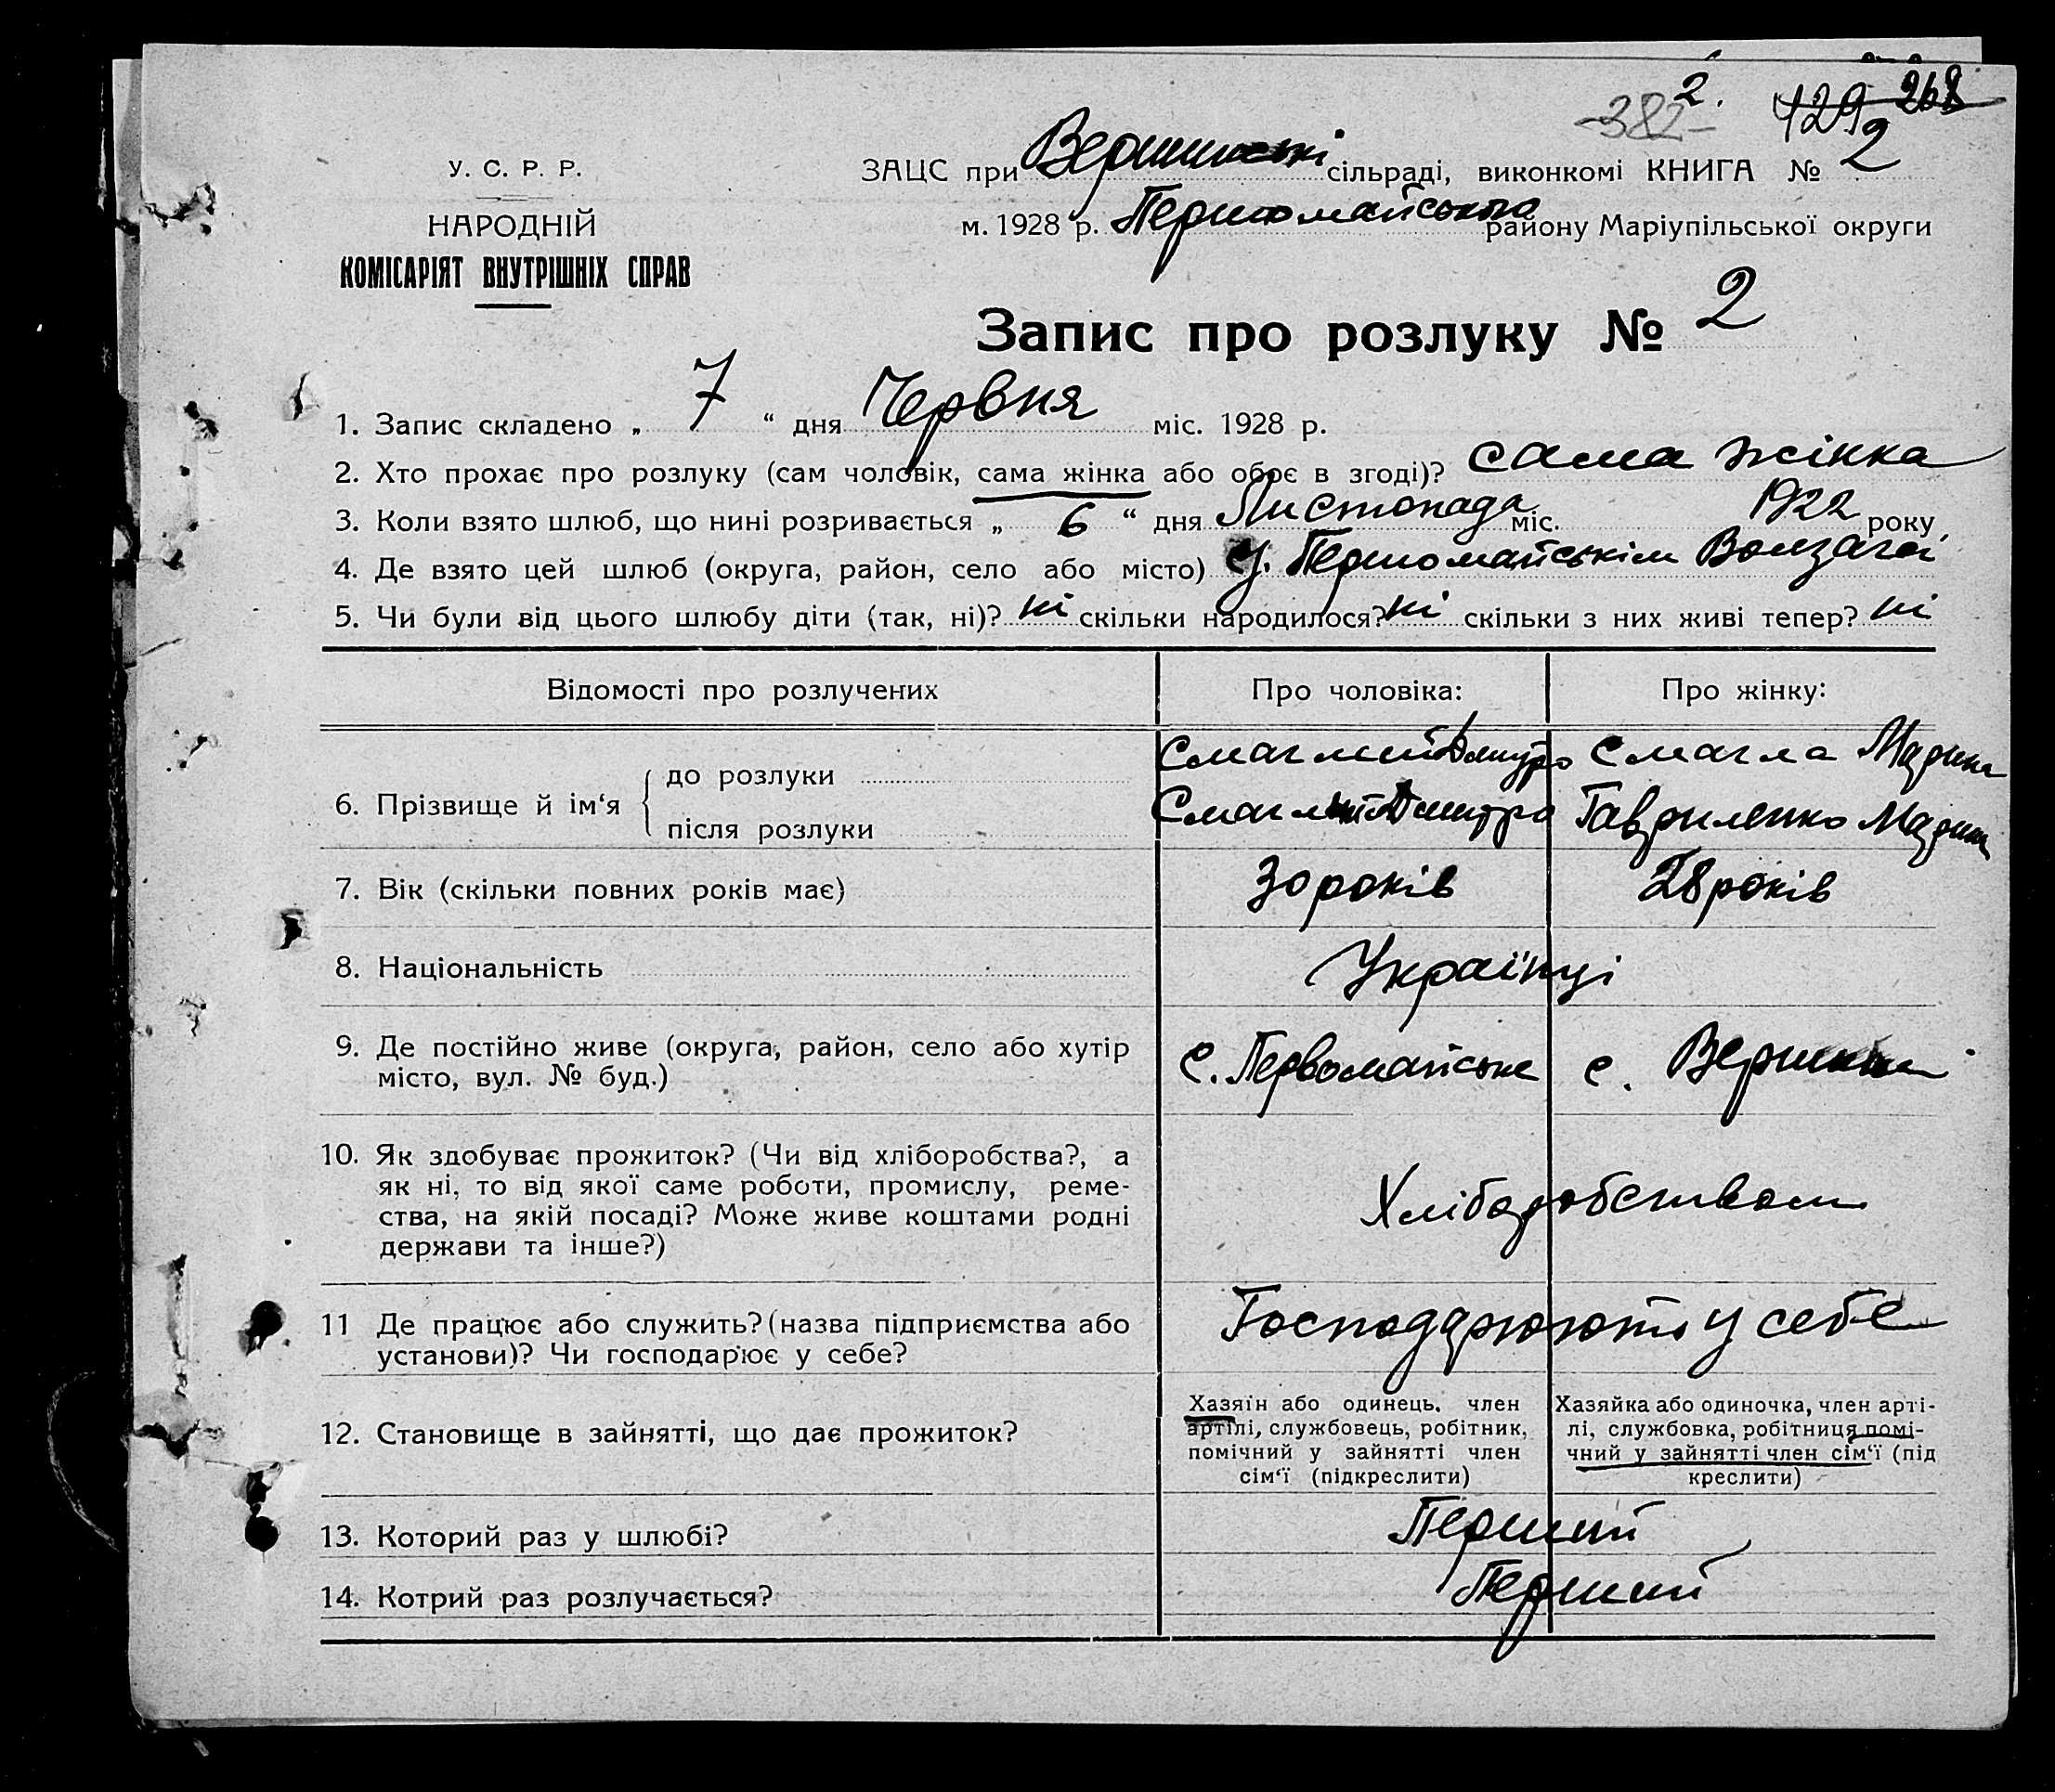 -382- 2. 129 268
У. С. Р. Р.
НАРОДНІЙ
КОМІСАРІЯТ ВНУТРІШНІХ СПРАВ
ЗАЦС при сільраді, виконкомі КНИГА № 2
м. 1928 р. Першомайського району Маріупільської округи
Запис про розлуку № 2
1. Запис складено „ 7 “ дня Червня міс. 1928 р.
2. Хто прохає про розлуку (сам чоловік, сама жінка або обоє в згоді)? сама жінка
3. Коли взято шлюб, що нині розривається „ 6 “ дня Листопада міс. 1922 року
4. Де взято цей шлюб (округа, район, село або місто) у. Першомайськім
5. Чи були від цього шлюбу діти (так, ні)? ні скільки народилося? ні скільки з них живі тепер? ні
Відомості про розлучених Про чоловіка: Про жінку:
6. Прізвище й ім‘я
до розлуки Смаглий Дмитро Смагла
після розлуки Смаглий Дмитро Гавриленко
7. Вік (скільки повних років має) 30 років 28 років
8. Національність Українці
9. Де постійно живе (округа, район, село або хутір
місто, вул. № буд.) с. Первомайське с.
10. Як здобуває прожиток? (Чи від хліборобства?, а
як ні, то від якої саме роботи, промислу, реме-
ства, на якій посаді? Може живе коштами родні
держави та інше?)
Хлібаробством
11 Де працює або служить? (назва підприємства або
установи)? Чи господарює у себе?
Господарюють у себе
12. Становище в зайнятті, що дає прожиток?
Хазяїн або одинець, член
артілі, службовець, робітник,
помічний у зайнятті член
сім‘ї (підкреслити)
Хазяйка або одиночка, член арті-
лі, службовка, робітниця помі-
чний у зайнятті член сім‘ї (під
креслити)
13. Которий раз у шлюбі? Перший
14. Котрий раз розлучається? Перший